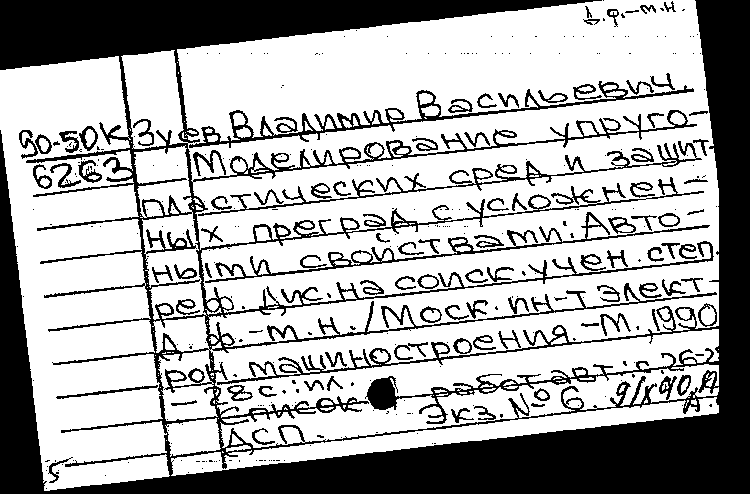 д.ф.-м.н.
90-50К Зуев, Владимир Васильевич.
6263 Моделирование упруго-
пластических сред и защит-
ных преград с усложнен-
ными свойствами: Авто-
реф. дис. на соиск. учен. степ.
д. ф.-м. н. / Моск. ин-т элект-
рон. машиностроения. - М., 1990
- 28 с.: ил.
Список работ авт.: с. 26-28
ДСП. Экз. № 6. 9/X 90.
5